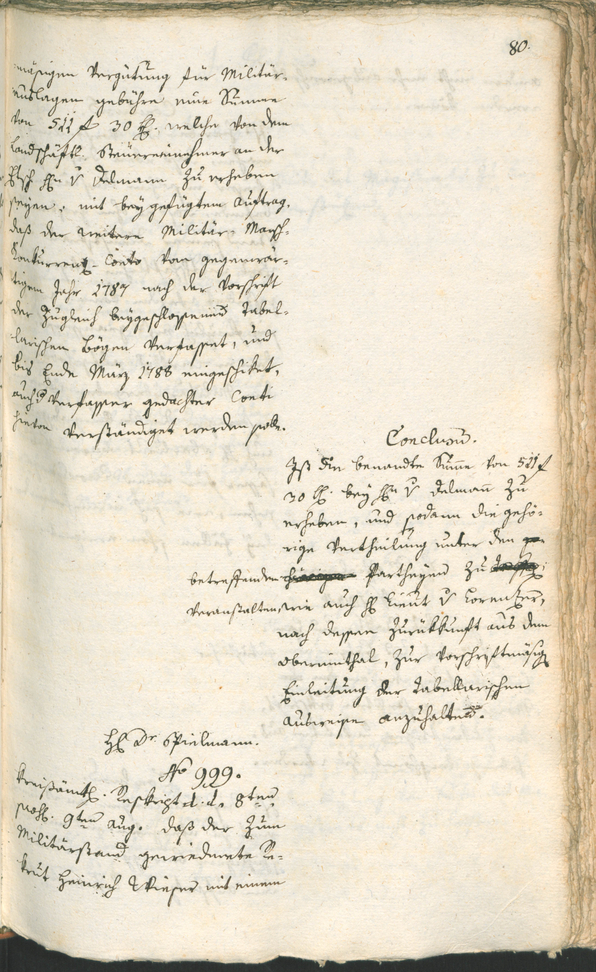 80.
mäsigen Vergütung für Militär-
auslagen gebühre eine Summe
von 511 f 30 x. welche von dem
Landschäftl. Steuereinnehmer an der
Etsch H. v. Delmann zu erheben
seyen. mit beygefügtem Auftrag.
daß der weitere Militär-Marsch-
Conkurrenz-Conto vom gegenwär-
tigen Jahr 1787 nach der Vorschrift
der zugleich beygeschlossenen Tabel-
larischen Bögen verfasset, und
bis Ende März 1788 eingeschiket,
auch Verfasser gedachter Conti
hievon verständiget werden solle.
Conclusum.
Ist die benandte Summe von 511 f
30 x. bey H. v. Delmann zu
erheben, und sodann die gehö-
rige Vertheilung unter den
betreffenden Partheyen zu
veranstalten, wie auch H. Lieut. v. Lorenzen,
nach dessen Zurükkunft aus dem
Oberinnthal, zur vorschriftmäsig
Einleitung der Tabellarischen
Ausweise anzuhalten.
H. Dr. Spielmann.
No 999.
Kreisämtl. Reskript d. d. 8ten
praes. 9ten Aug. daß der zum
Militärstand gewiedmete Re-
krut Heinrich Wieser mit einem